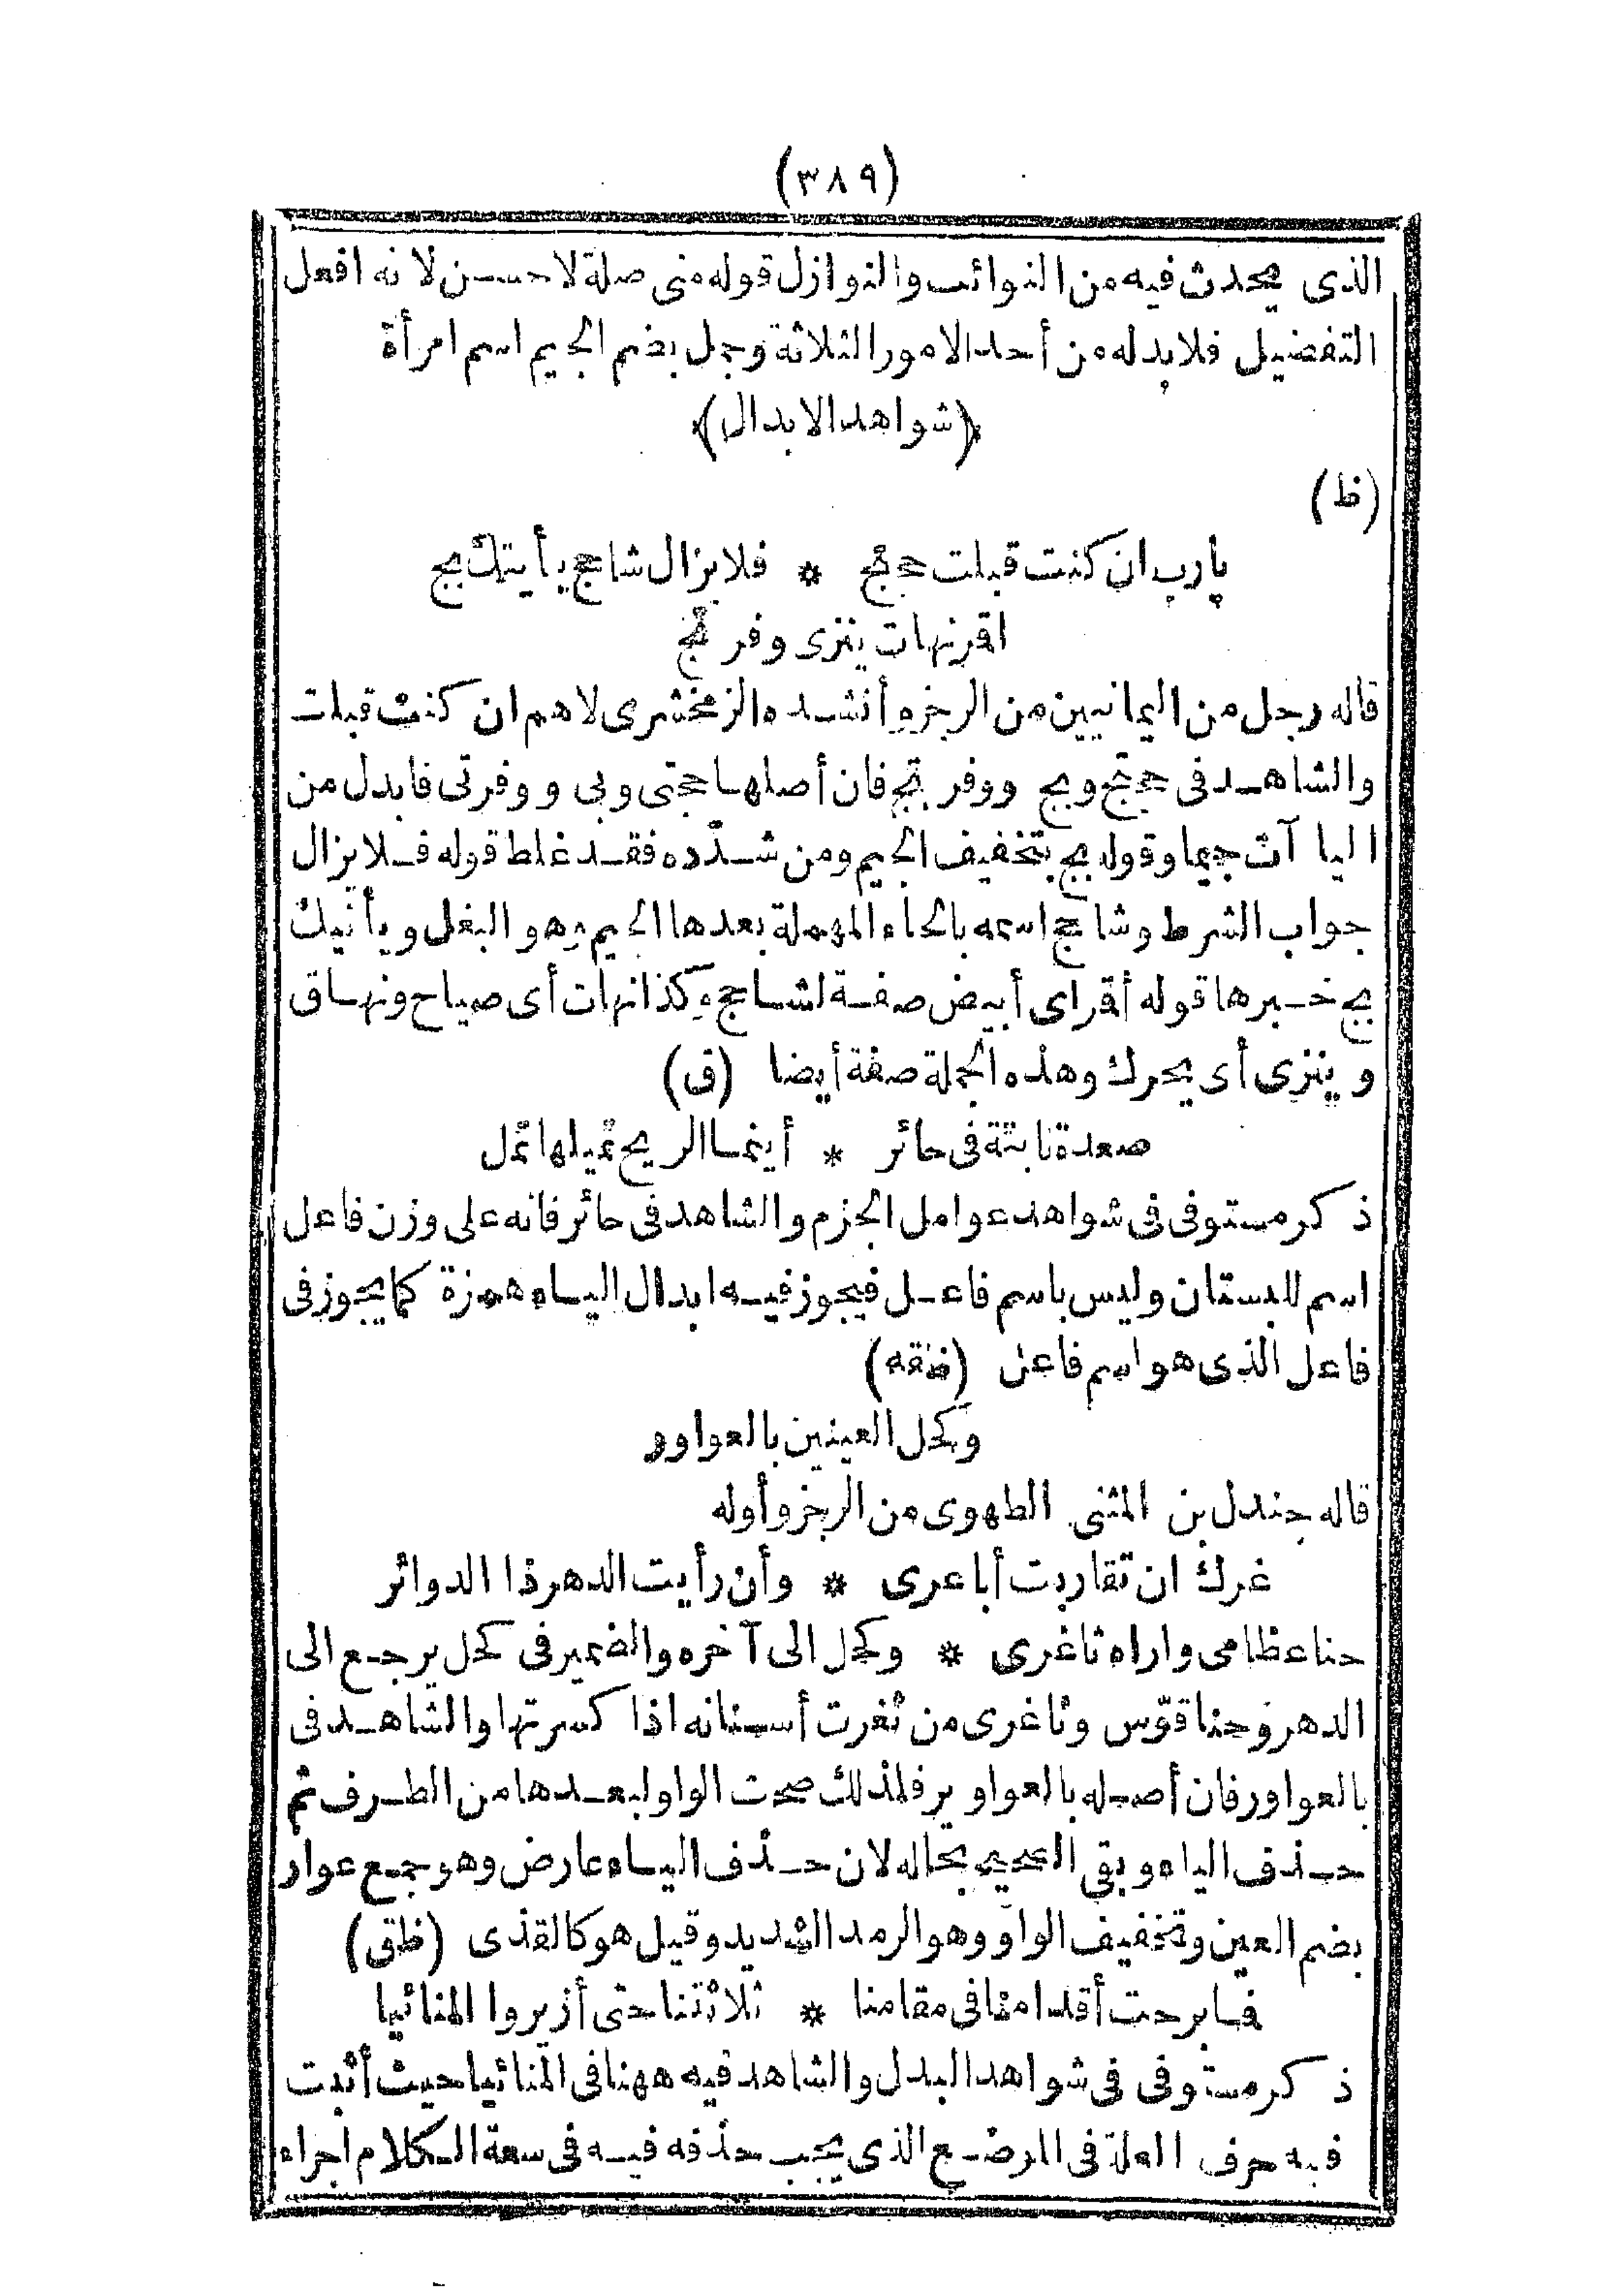 (٣٨٩)
الذى يحدث فيه من النوائب والنوازل قوله منى صلة لاحسن لانه افعل
التفضيل فلابد له من أحد الامور الثلاثة وجمل بضم الجيم اسم امرأة
(شواهد الابدال)
(ظ)
يارب ان كنت قبلت حجتج * فلا يزال شاحج يأيتك بج
اقرنهات ينزى وفرتج
قاله رجل من اليمانيين من الرجز وأنشده الزمخشرى لاهم ان كنت قبلت
والشاهد فى حجتج وبج ووفرتج فان أصلها حجتى وبى ووفرتى فابدل من
اليا آت جيما وقوله بج بتخفيف الجيم ومن شدّده فقد غلط قوله فلا يزال
جواب الشرط وشاحج اسمه بالحاء المهملة بعدها الجيم وهو البغل ويأتيك
بج خبرها قوله أقر اى أبيض صفة لشاحج وكذا نهات أى صياح ونهاق
وينزى أى يحرك وهذه الجملة صفة أيضا (ق)
صعدة نابتة فى حائر * أينما الريح تميلها تمل
ذكر مستوفى فى شواهد عوامل الجزم والشاهد فى حائر فانه على وزن فاعل
اسم للبستان وليس باسم فاعل فيجوز فيه ابدال الياء همزة كما يجوز فى
فاعل الذى هو اسم فاعل (ظقه)
وكحل العينين بالعواور
قاله جندل بن المثنى الطهوى من الرجز وأوله
غرك ان تقاربت أباعرى * وأن رأيت الدهر ذا الدوائر
حنا عظامى واراه ثاغرى * وكحل الى آخره والضمير فى كحل يرجع الى
الدهر وحنا قوّس وثاغرى من ثغرت أسنانه اذا كسرتها والشاهد فى
بالعواور فان أصله بالعواوير فلذلك صحت الواو لبعدها من الطرف ثم
حذف الياء وبقى الصحيح بحاله لان حذف الياء عارض وهو جمع عوار
بضم العين وتخفيف الواو وهو الرمد الشديد وقيل هو كالقذى (ظق)
فما برحت أقدامنا فى مقامنا * ثلاثتنا حتى أزيروا المنائيا
ذكر مستوفى فى شواهد البدل والشاهد فيه ههنا فى المنائيا حيث أثبت
فيه حرف العلة فى الموضع الذى يجب حذفه فيه فى سعة الكلام اجراء